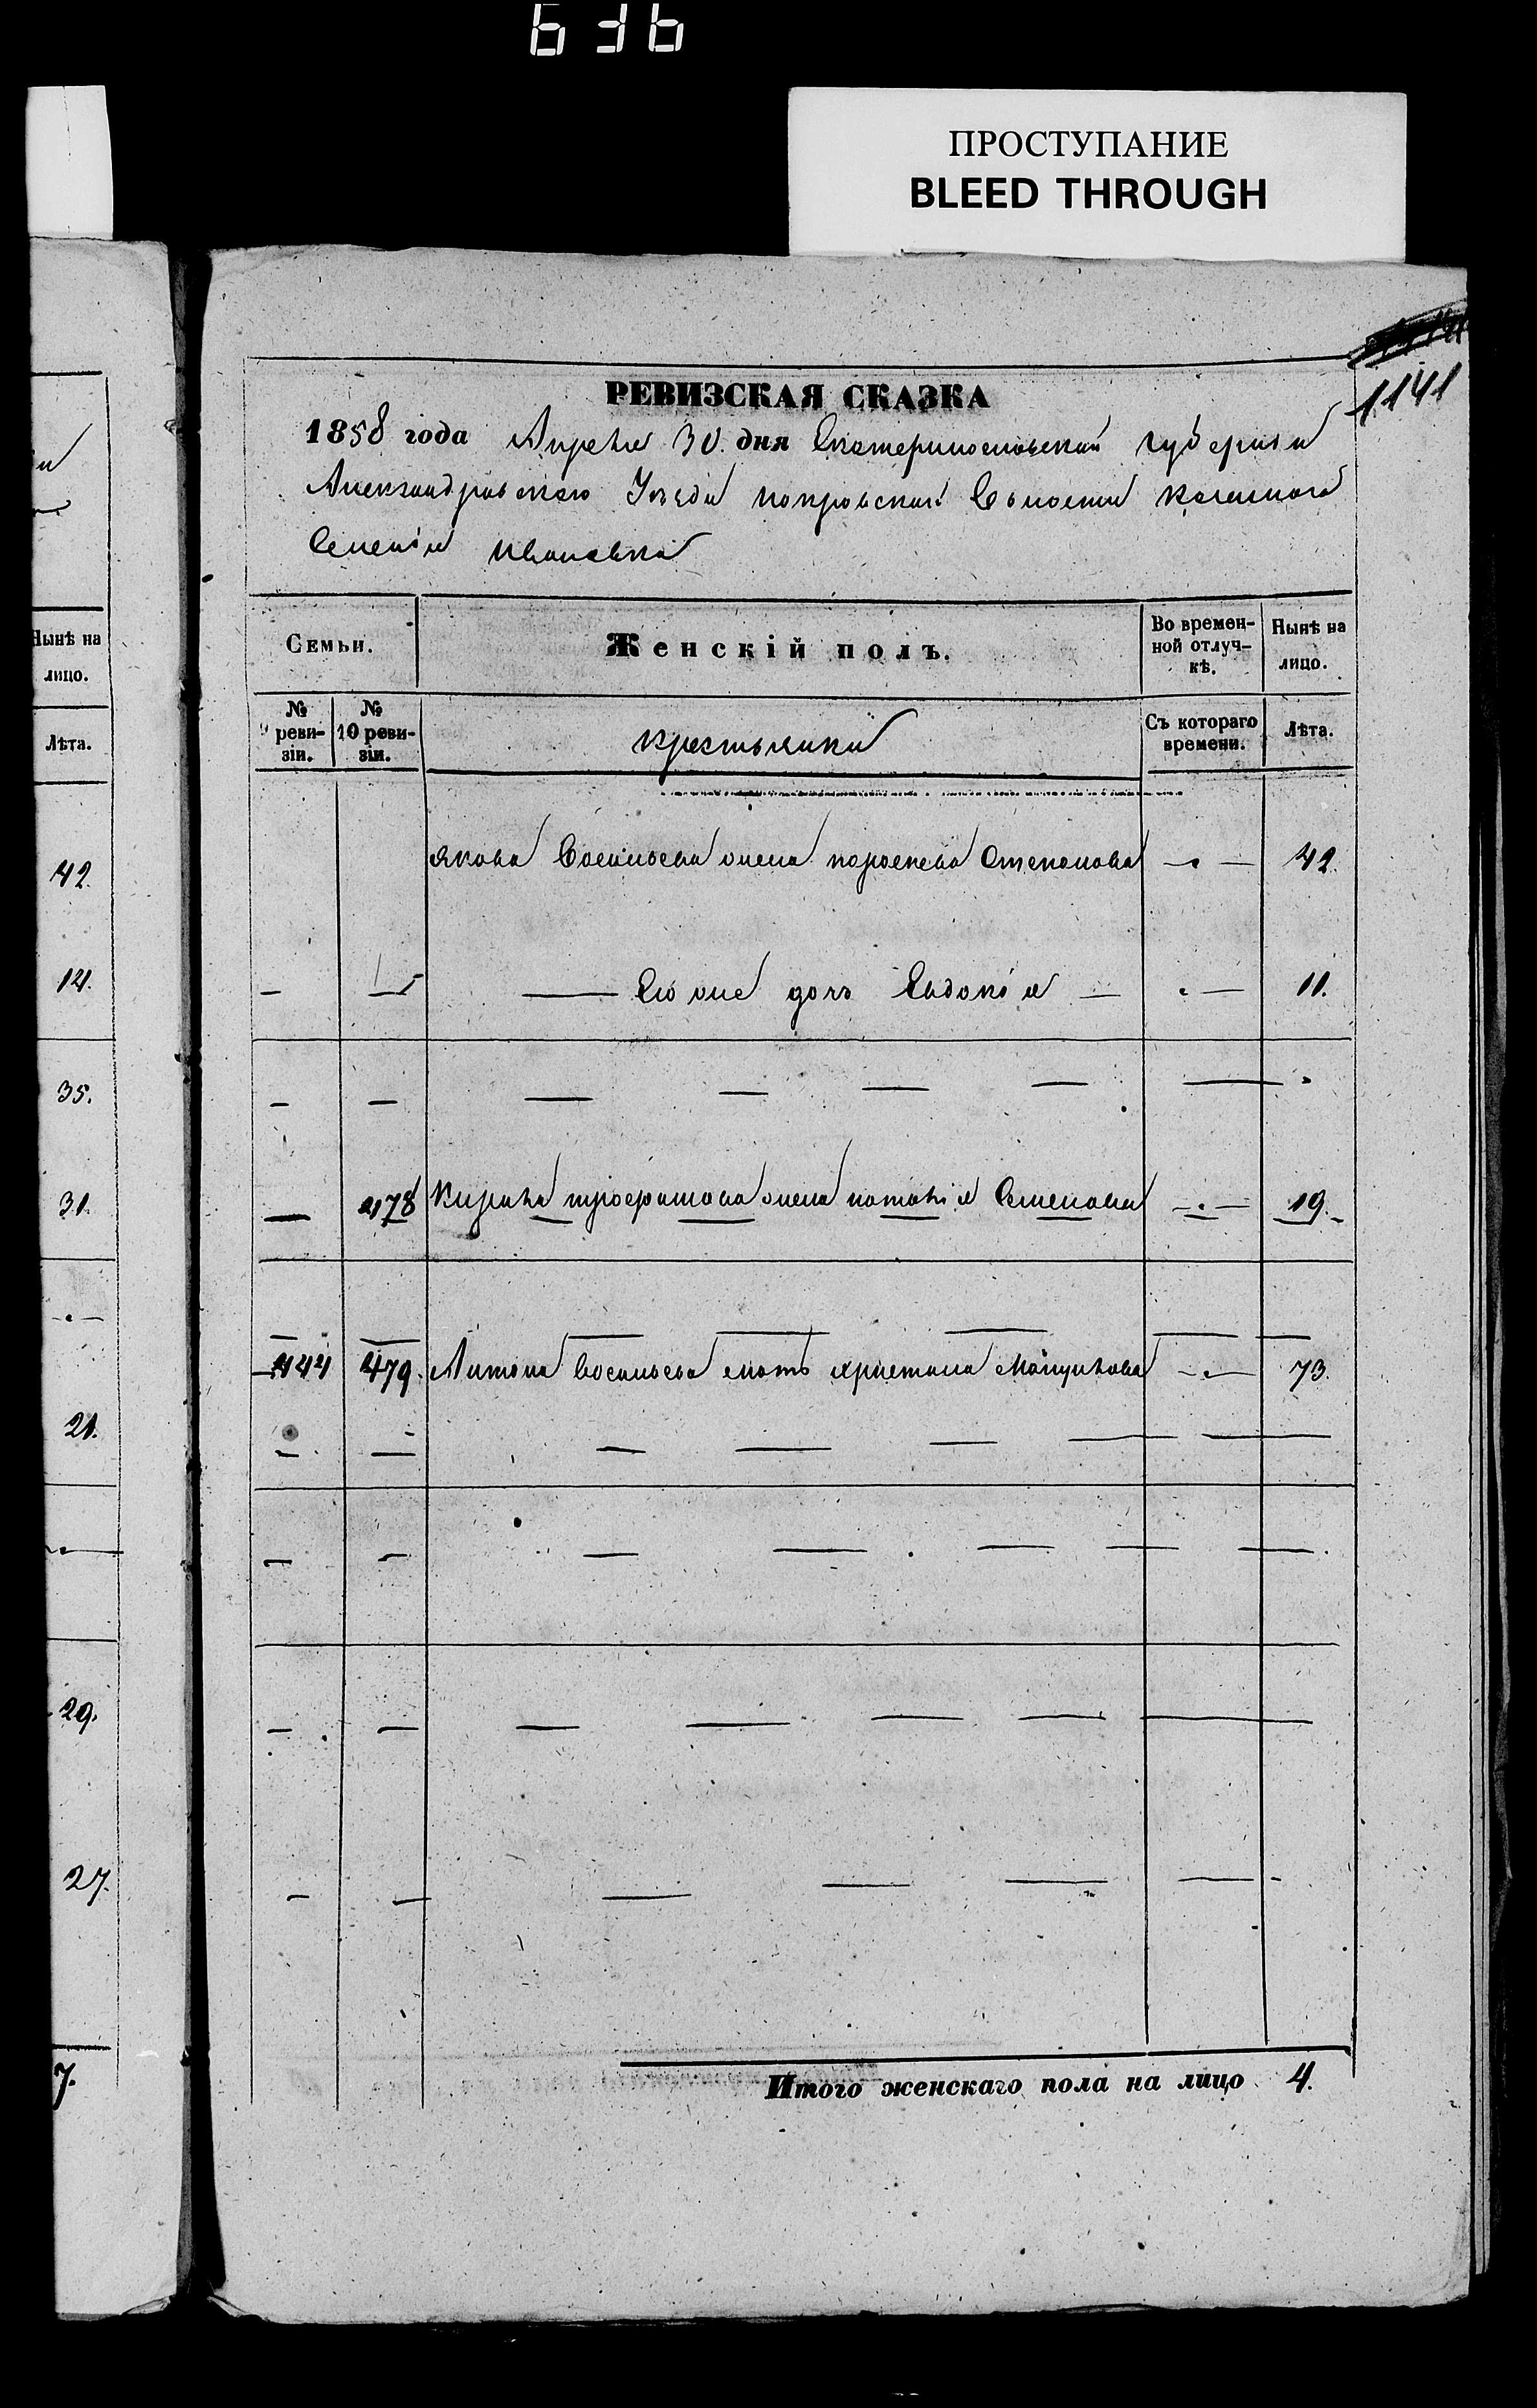 636
ПРОСТУПАНИЕ
BLEED THROUGH
1141
РЕВИЗСКАЯ СКАЗКА
1858 года Апреля 30. дня Екатеринославской губерніи
Александровскаго Уезда покровской Волости казеннаго
Селенія Ивановка
Семьи.
Женскій полъ.
Во времен-
ной отлуч-
кѣ.
Нынѣ на
лицо.
№
9 реви-
зіи.
№
10 реви-
зіи.
крестьянки
Съ котораго
времени.
Лѣта.
Якова Васильева жена параскева Степанова — 42.
Его же дочь Евдокія — 11.
478 Кирила жена наталія Семенова — 19.
444 479. Антона Васильева мать христина — 73.
Итого женскаго пола на лицо 4.
Нынѣ на
лицо.
Лѣта.
42.
14.
35.
31.
21.
29.
27.
7.